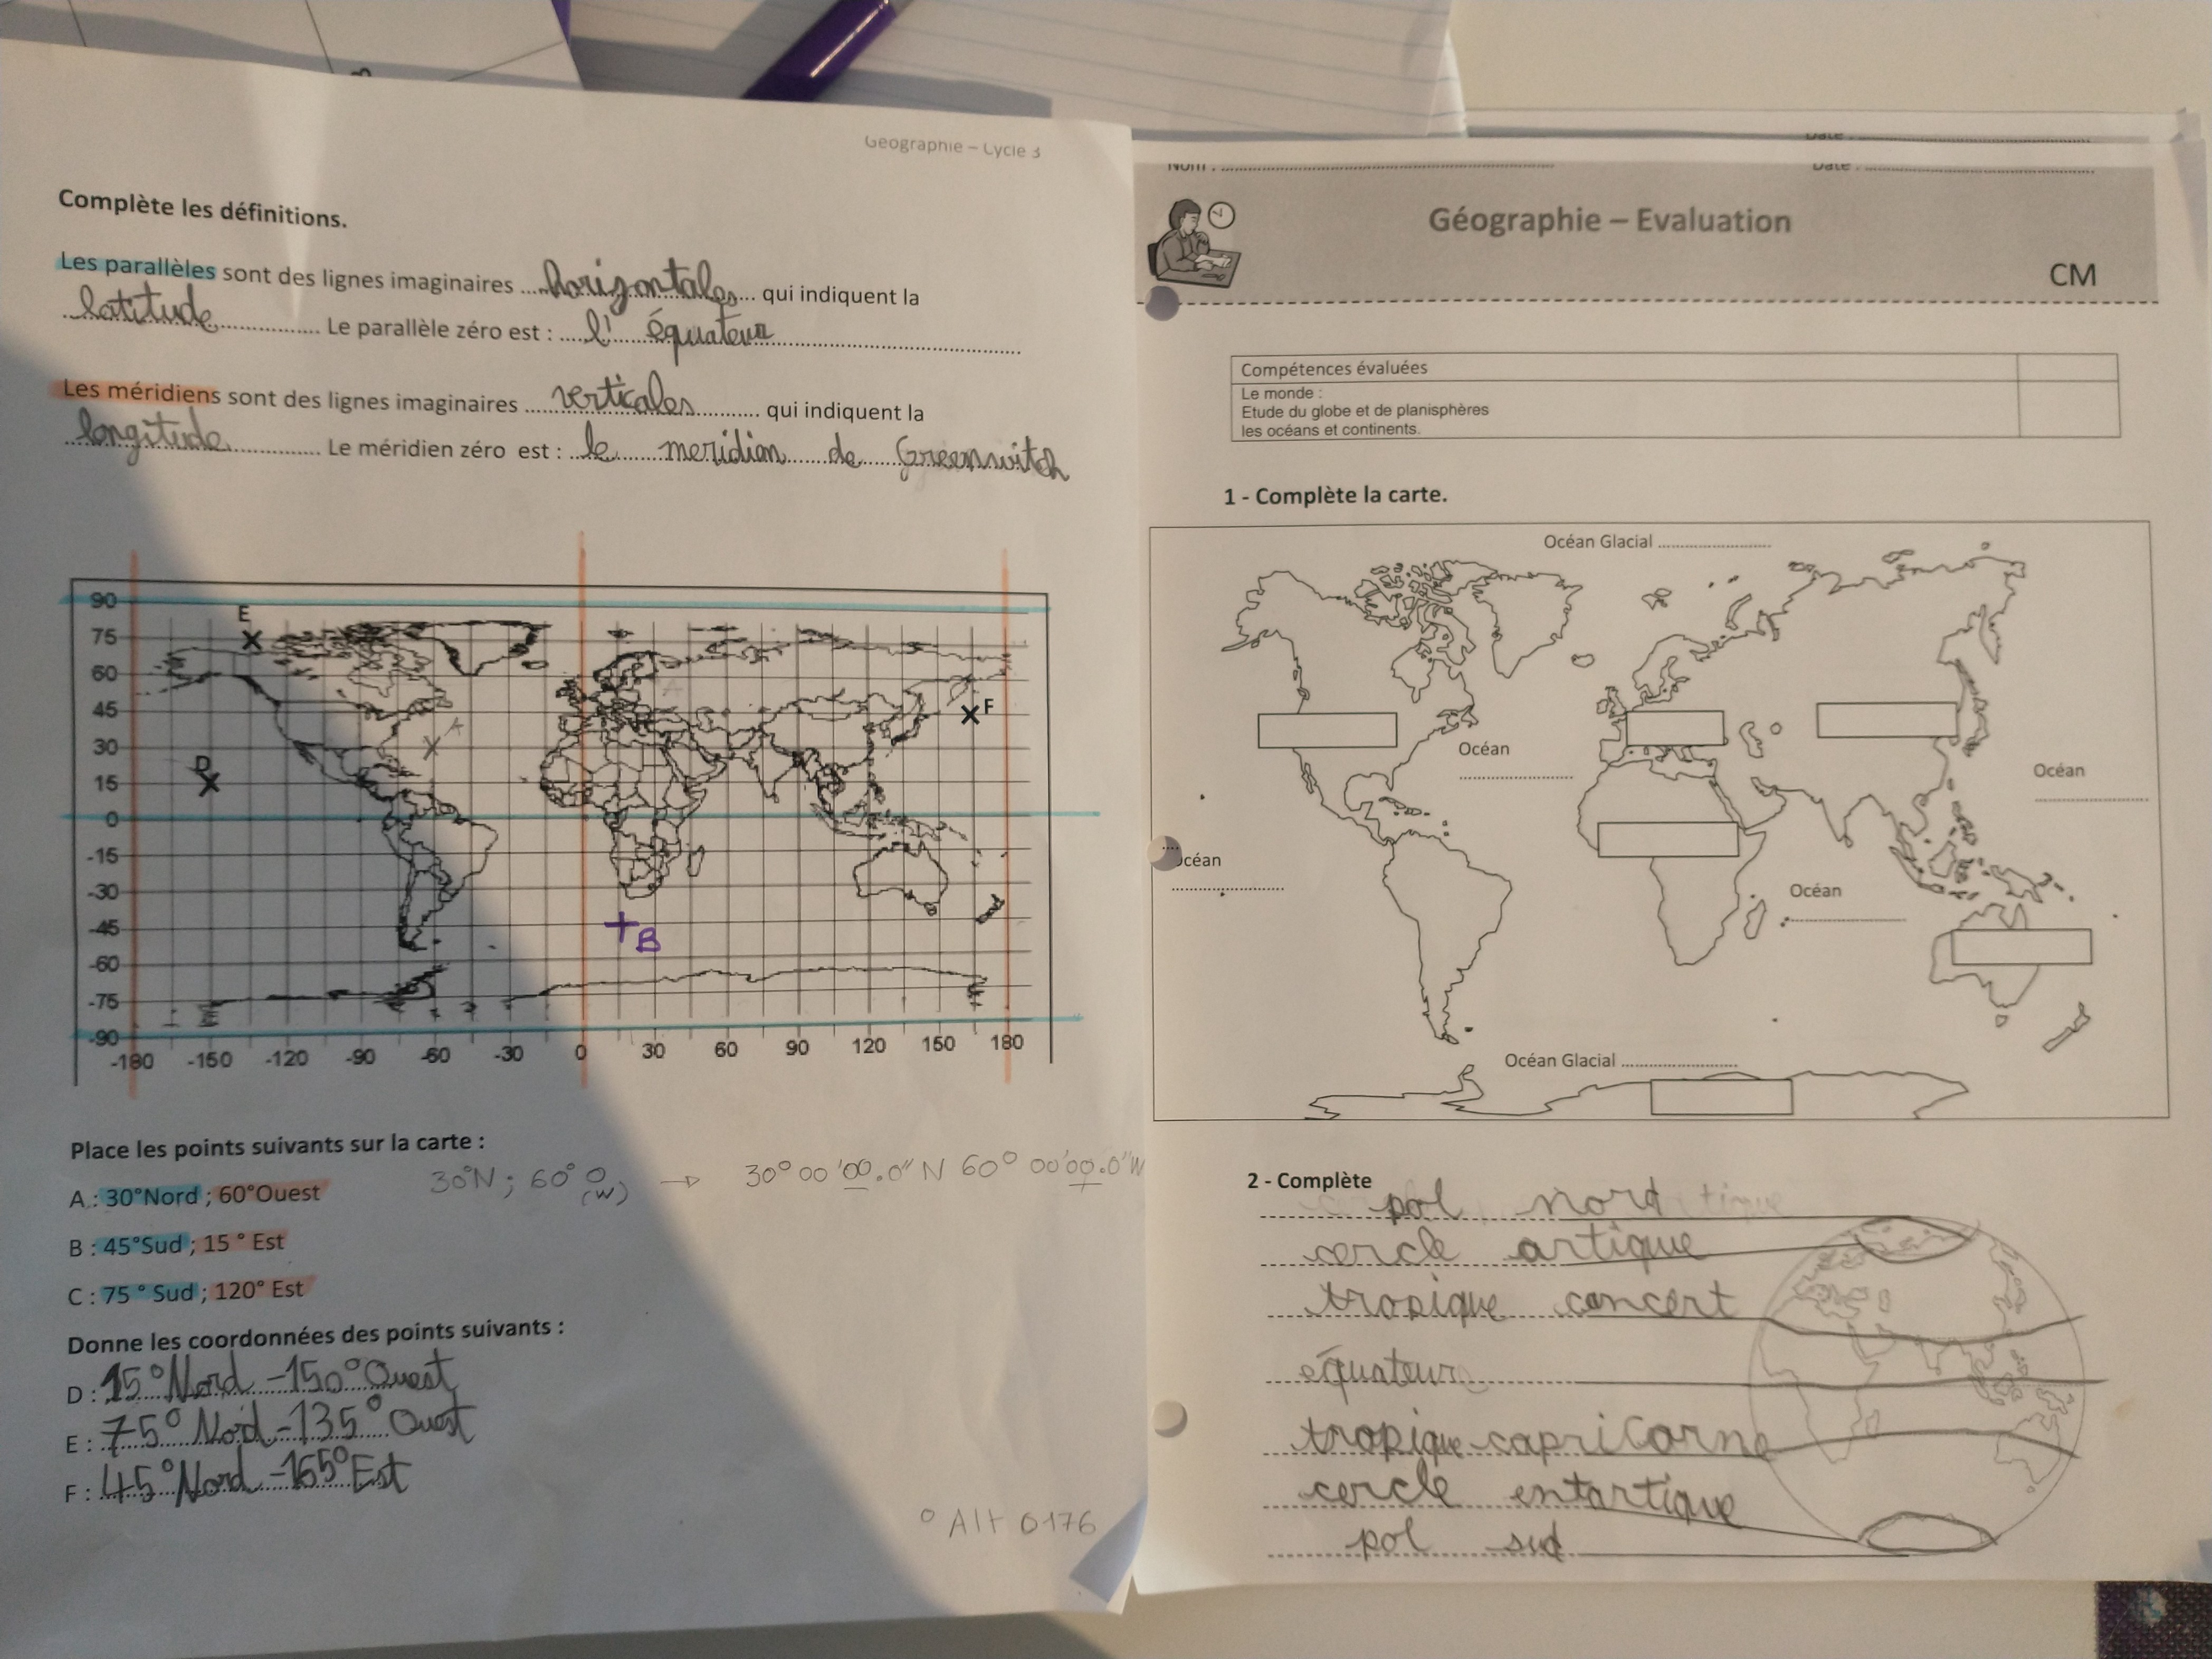 Géographie – Cycle 3
Complète les définitions.
Les parallèles sont des lignes imaginaires ....horizontales.... qui indiquent la
latitude................ Le parallèle zéro est : .....l' équateur........................
Les méridiens sont des lignes imaginaires ....verticales.......... qui indiquent la
longitude............... Le méridien zéro est : ..le meridian de Greenwitch
90
75
60
45
30
15
0
-15
-30
-45
-60
-75
-90
E
D
F
A
B
-180 -150 -120 -90 -60 -30 0 30 60 90 120 150 180
Place les points suivants sur la carte :
30°N ; 60° O → 30° 00 '00.0" N 60° 00'00.0"W
(W)
A : 30°Nord ; 60°Ouest
B : 45°Sud ; 15 ° Est
C : 75 ° Sud ; 120° Est
Donne les coordonnées des points suivants :
D : 15°Nord -150°Ouest
E : 75° Nord -135° Ouest
F : 45°Nord -165°Est
° Alt 0176
Date :
Nom : Date :
Géographie – Evaluation
CM
Compétences évaluées
Le monde :
Etude du globe et de planisphères
les océans et continents.
1 - Complète la carte.
Océan Glacial ........................
Océan
........................
Océan
........................
océan
........................
Océan
........................
Océan Glacial ........................
2 - Complète
pol nord
cercle artique
tropique concert
équateur
tropique capricorne
cercle entartique
pol sud